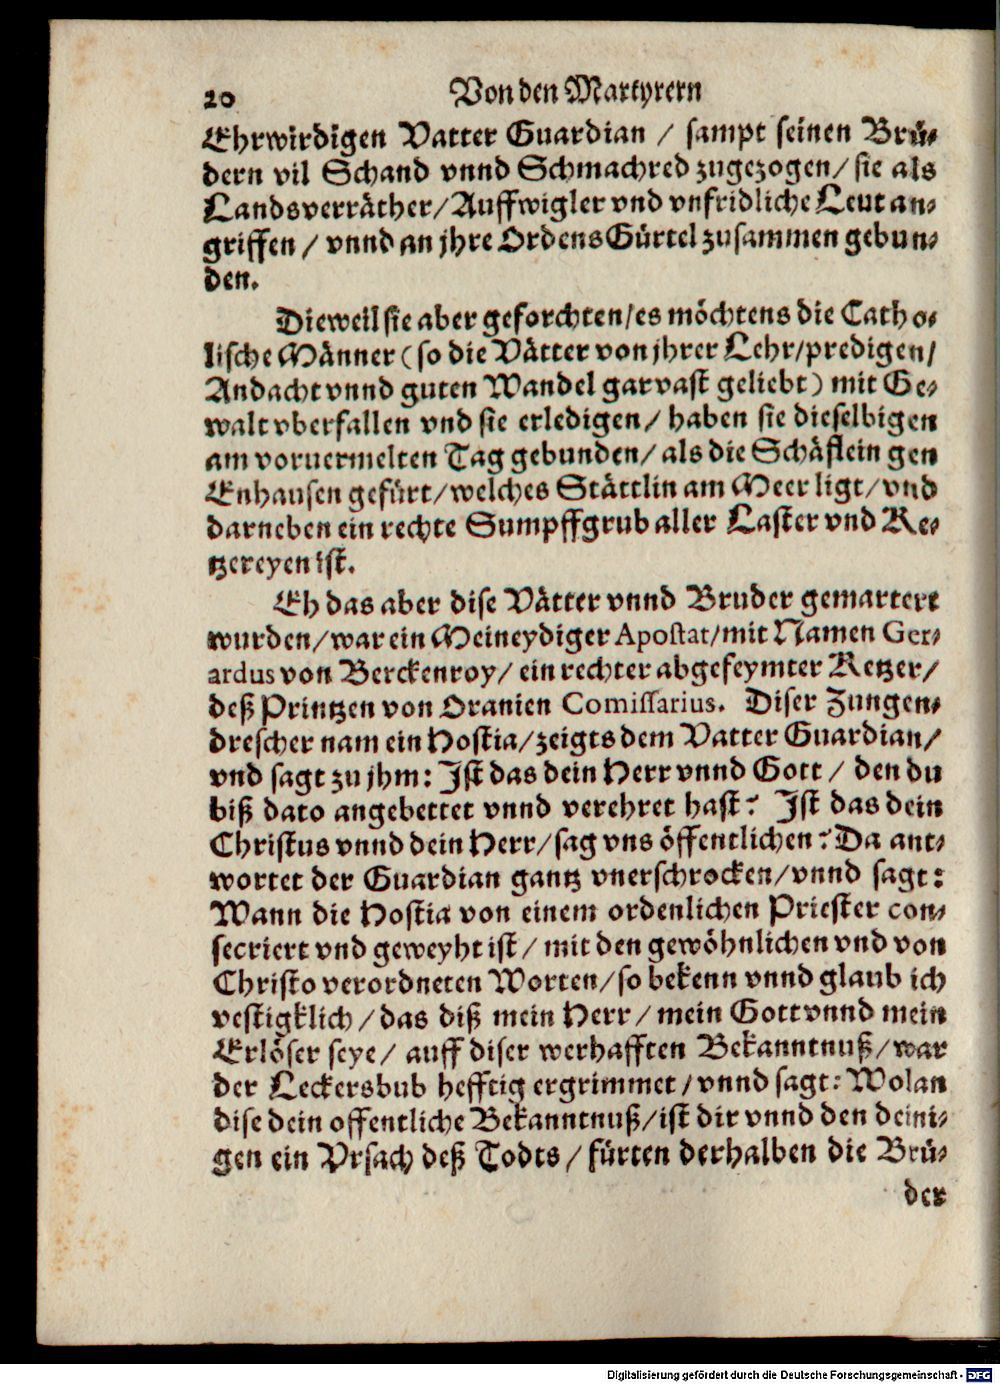 20 Von den Martyrern
Ehrwirdigen Vatter Guardian / sampt seinen Brü-
dern vil Schand vnnd Schmachred zugezogen/ sie als
Landsverräther/ Auffwigler vnd vnfridliche Leut an-
griffen / vnnd an jhre Ordens Gürtel zusammen gebun-
den.
Dieweil sie aber geforchten/ es möchtens die Catho-
lische Männer (so die Vätter von jhrer Lehr/ predigen/
Andacht vnnd guten Wandel gar vast geliebt) mit Ge-
walt vberfallen vnd sie erledigen/ haben sie dieselbigen
am voruermelten Tag gebunden/ als die Schäflein gen
Enhausen gefürt/ welches Stättlin am Meer ligt/ vnd
darneben ein rechte Sumpffgrub aller Laster vnd Ke-
tzereyen ist.
Eh das aber dise Vätter vnnd Bruder gemartert
wurden/ war ein Meineydiger Apostat/ mit Namen Ger-
ardus von Berckenroy/ ein rechter abgefeymter Ketzer/
deß Printzen von Oranien Comissarius. Diser Zungen-
drescher nam ein Hostia/ zeigts dem Vatter Guardian/
vnd sagt zu jhm: Ist das dein Herr vnnd Gott / den du
biß dato angebettet vnnd verehret hast? Ist das dein
Christus vnnd dein Herr/ sag vns öffentlichen? Da ant-
wortet der Guardian gantz vnerschrocken/ vnnd sagt:
Wann die Hostia von einem ordenlichen Priester con-
secriert vnd geweyht ist/ mit den gewöhnlichen vnd von
Christo verordneten Worten/ so bekenn vnnd glaub ich
vestigklich / das diß mein Herr/ mein Gott vnnd mein
Erlöser seye/ auff diser werhafften Bekanntnuß/ war
der Leckersbub hefftig ergrimmet/ vnnd sagt: Wolan
dise dein offentliche Bekanntnuß/ ist dir vnnd den deini-
gen ein Vrsach deß Todts / fürten derhalben die Brü-
der
Digitalisierung gefördert durch die Deutsche Forschungsgemeinschaft - DFG